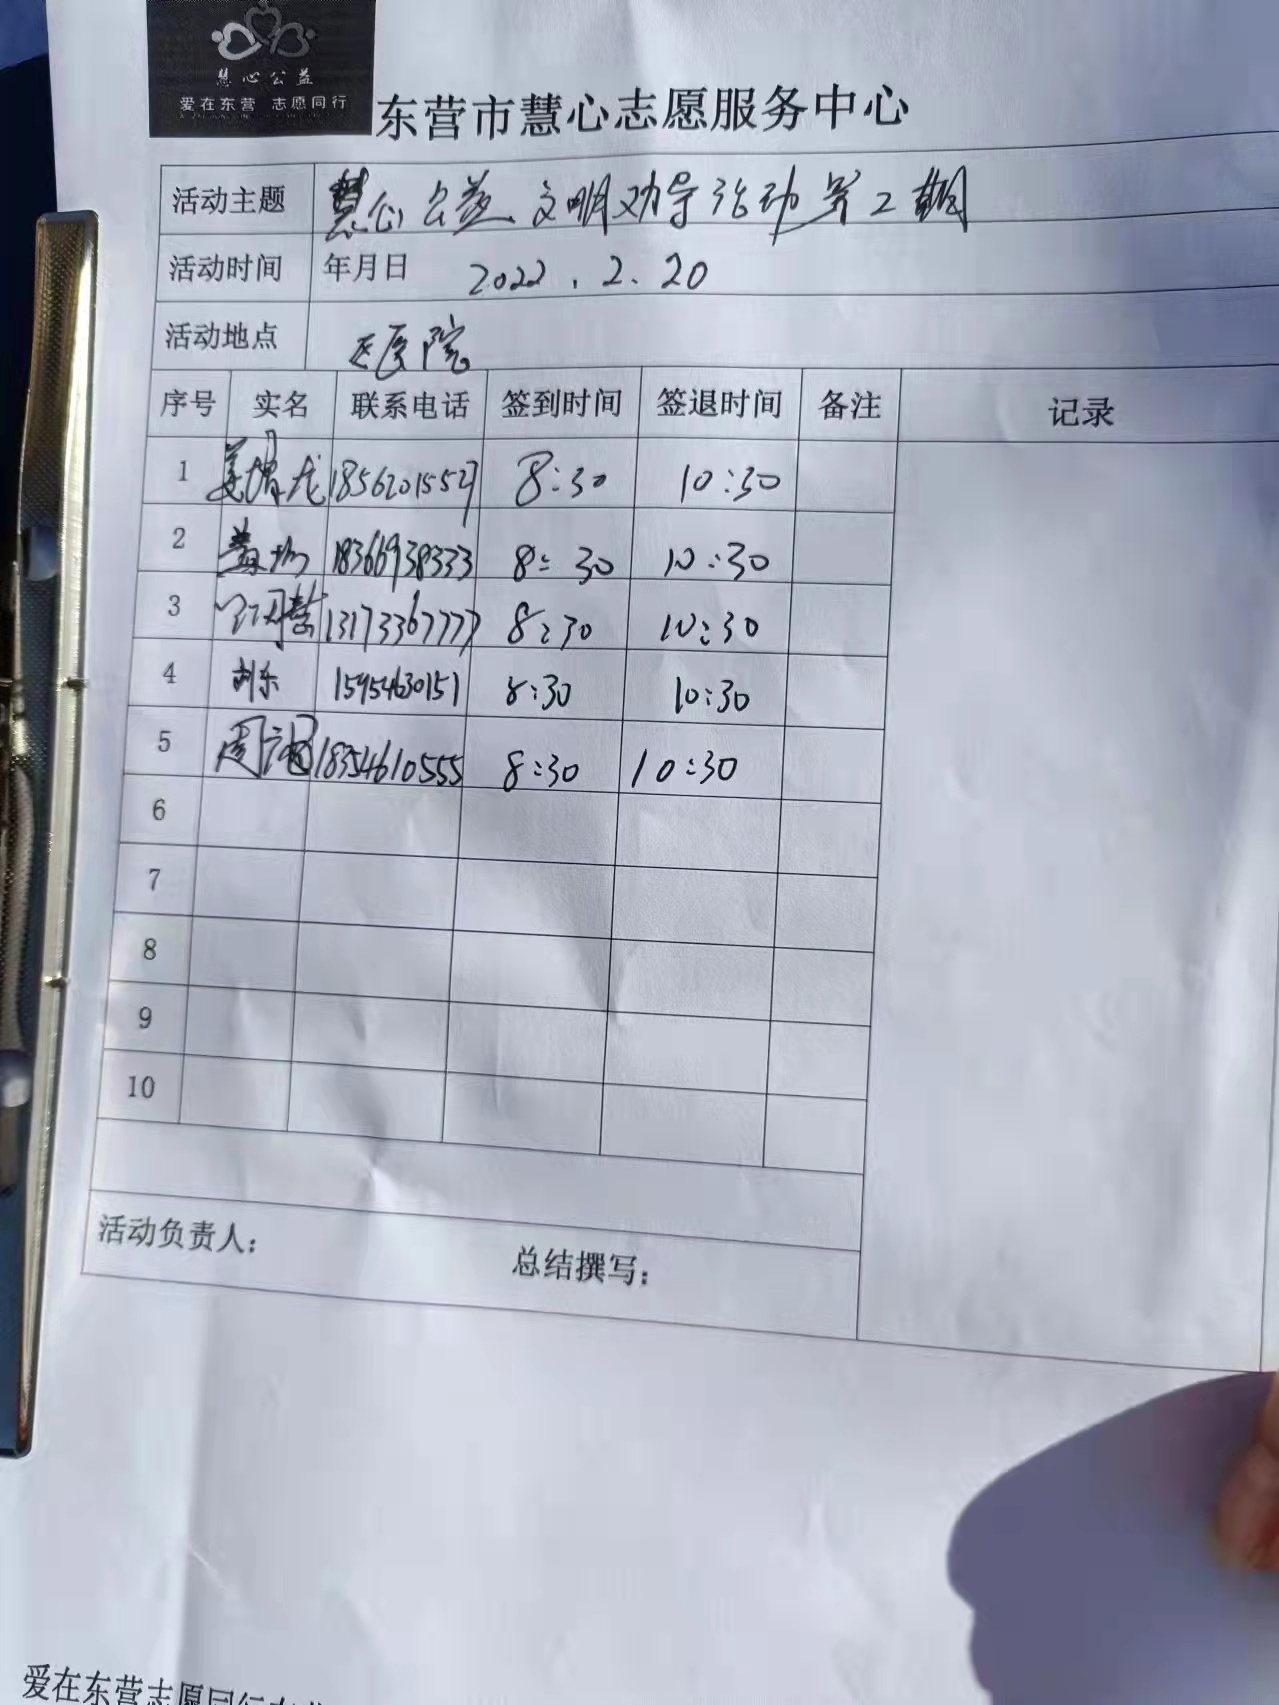 慧心公益
爱在东营 志愿同行
东营市慧心志愿服务中心
活动主题 慧心公益文明劝导活动第2期
活动时间 年月日 2022.2.20
活动地点 医院
序号 实名 联系电话 签到时间 签退时间 备注 记录
1 18562015527 8:30 10:30
2 18366938333 8:30 10:30
3 13173367777 8:30 10:30
4 刘东 15954630151 8:30 10:30
5 周 18354610555 8:30 10:30
6
7
8
9
10
活动负责人： 总结撰写：
爱在东营志愿同行